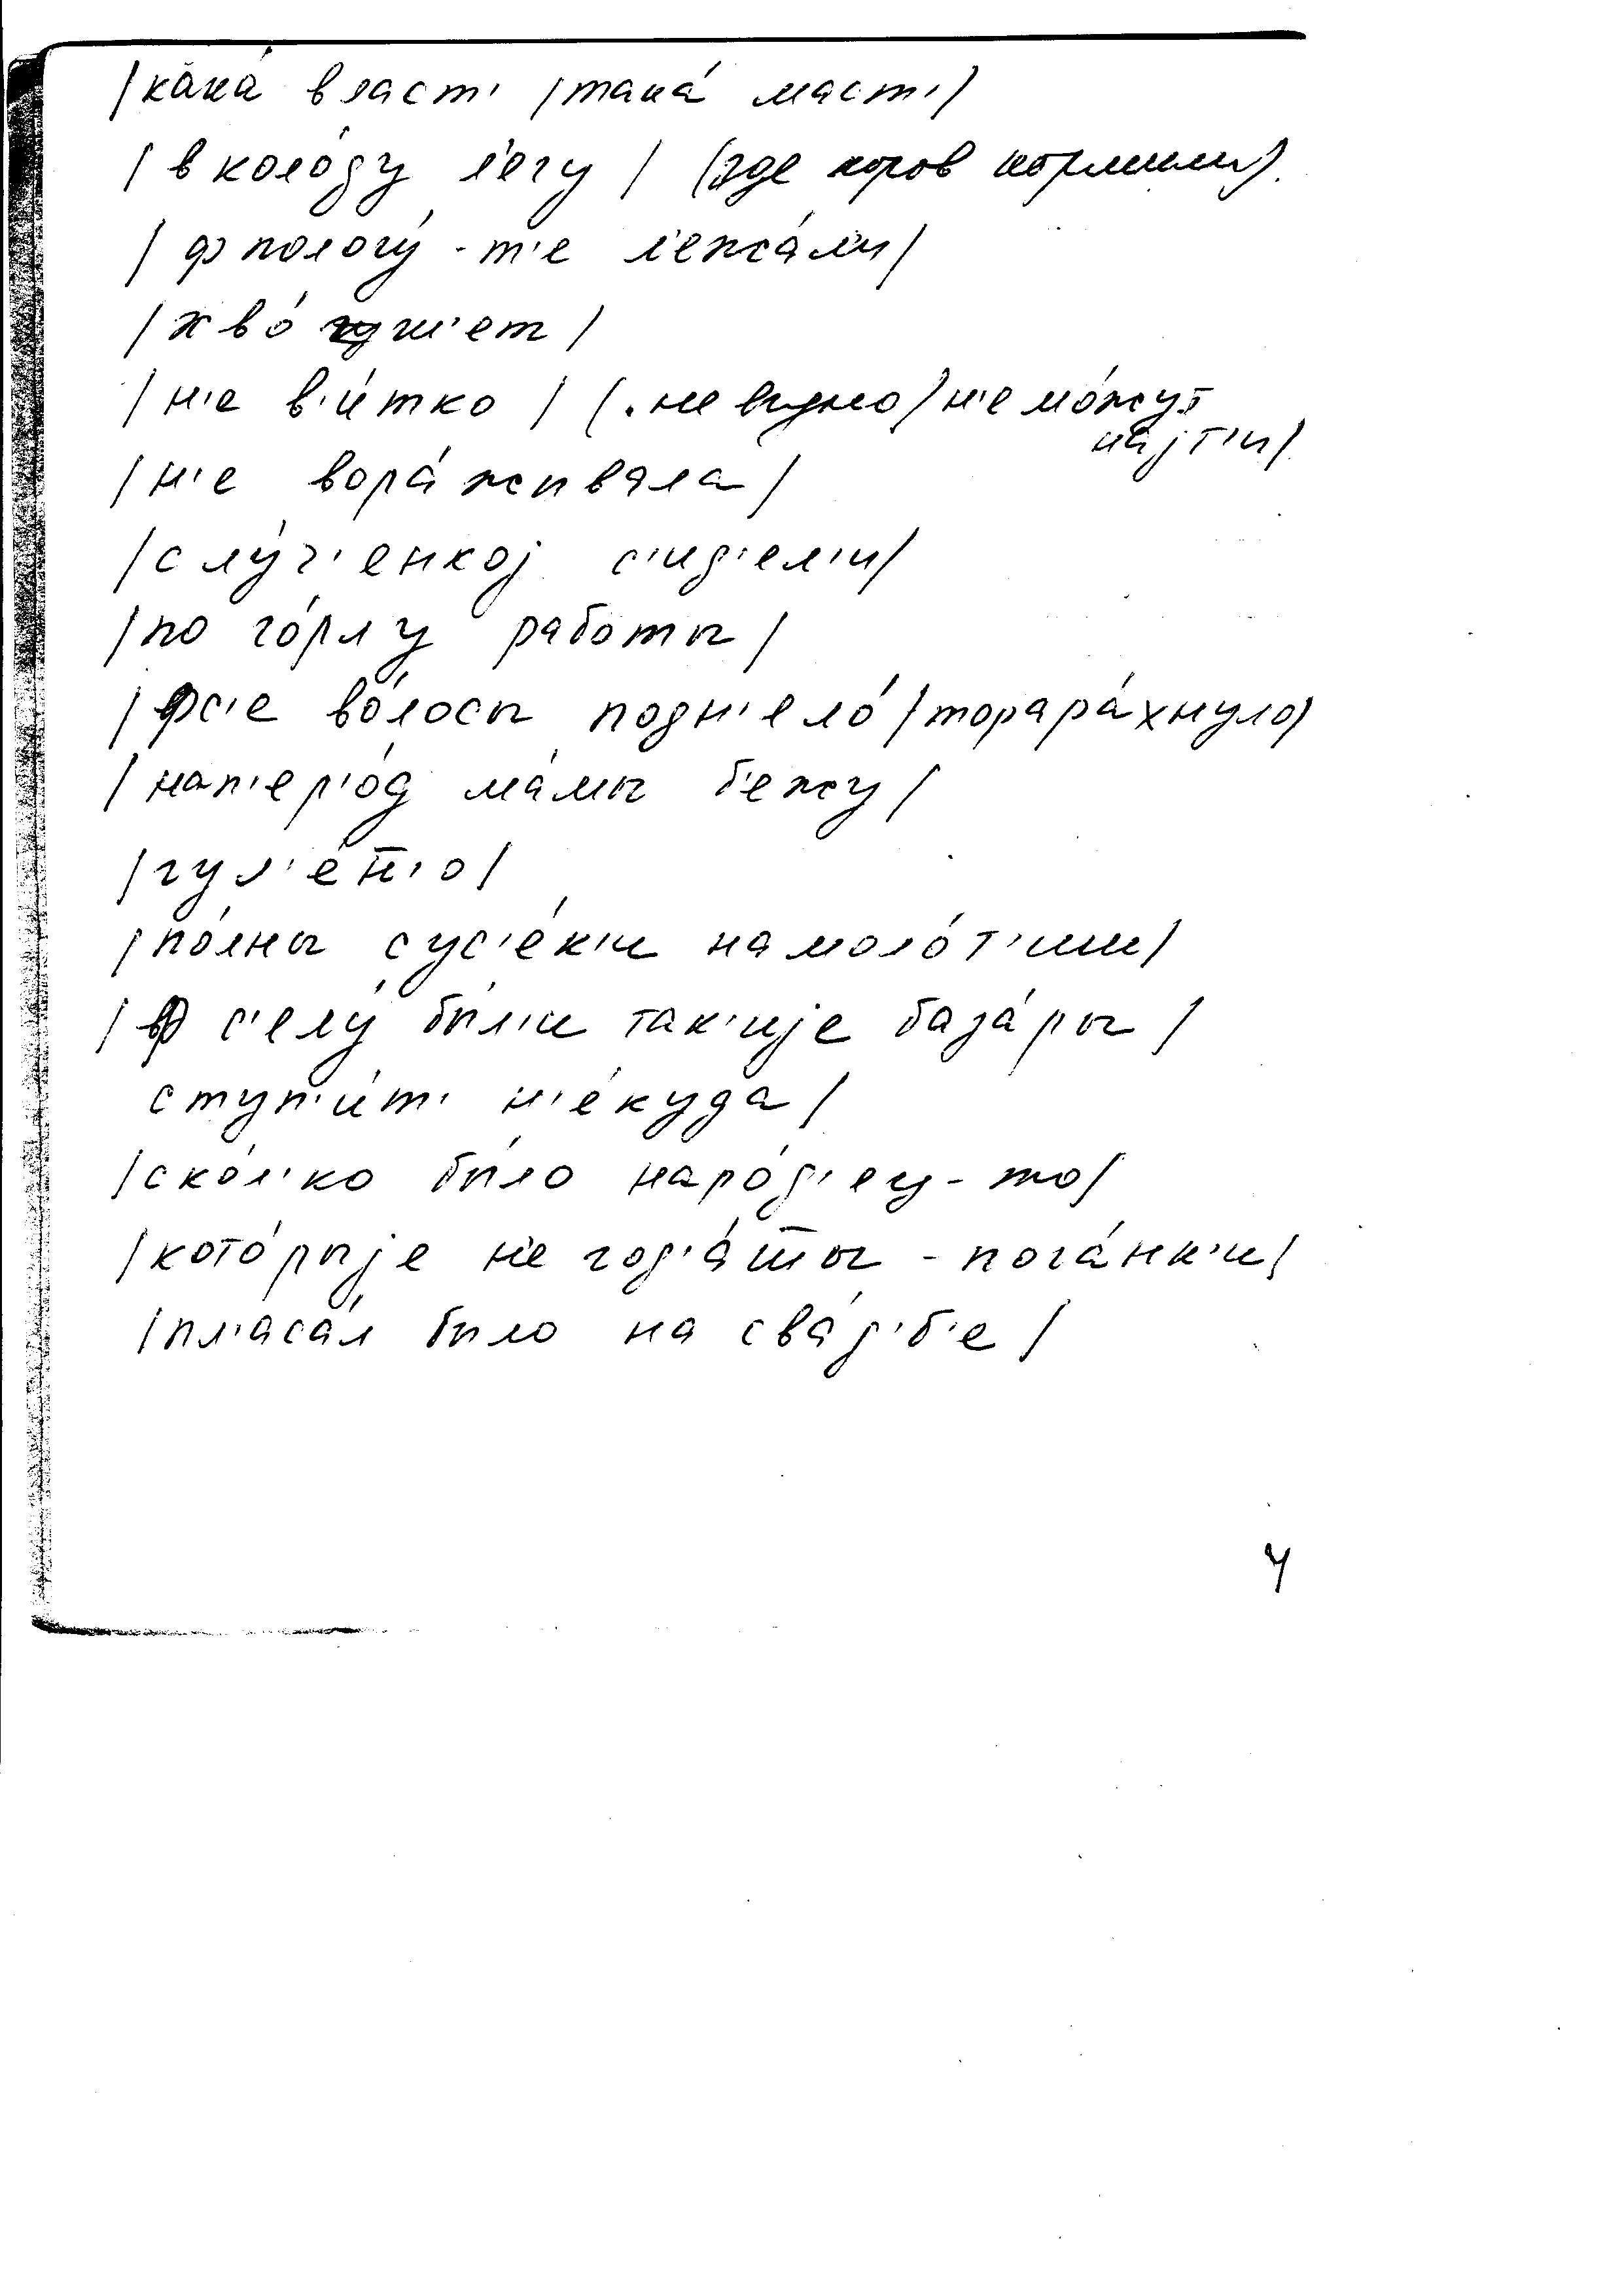 /кака́ власт' /така́ маст'/
/в коло́ду л'егу/ (где коров кормили).
/ф пологу́-т'е л'ежа́л'и/
/н'е в'и́тко/ (.не видно/н'е мо́жут
најт'и/
/н'е вора́живала/
/с лу́ч'енкој с'ид'ел'и/
/по го́рлу работы/
/фс'е во́лосы подн'ело́/торара́хнуло/
/нап'ер'о́д ма́мы б'ежу/
/гул'е́н̅'о/
/по́лны сус'е́к'и намоло́т'им/
/ф с'елу́ бы́л'и так'ије база́ры/
ступ'и́т' н'е́куда/
/ско́л'ко бы́ло наро́д'еу-то/
/кото́рыје н'е год'а́т̅ы - пога́нк'и/
/пл'аса́л было на сва́д'б'е/
4